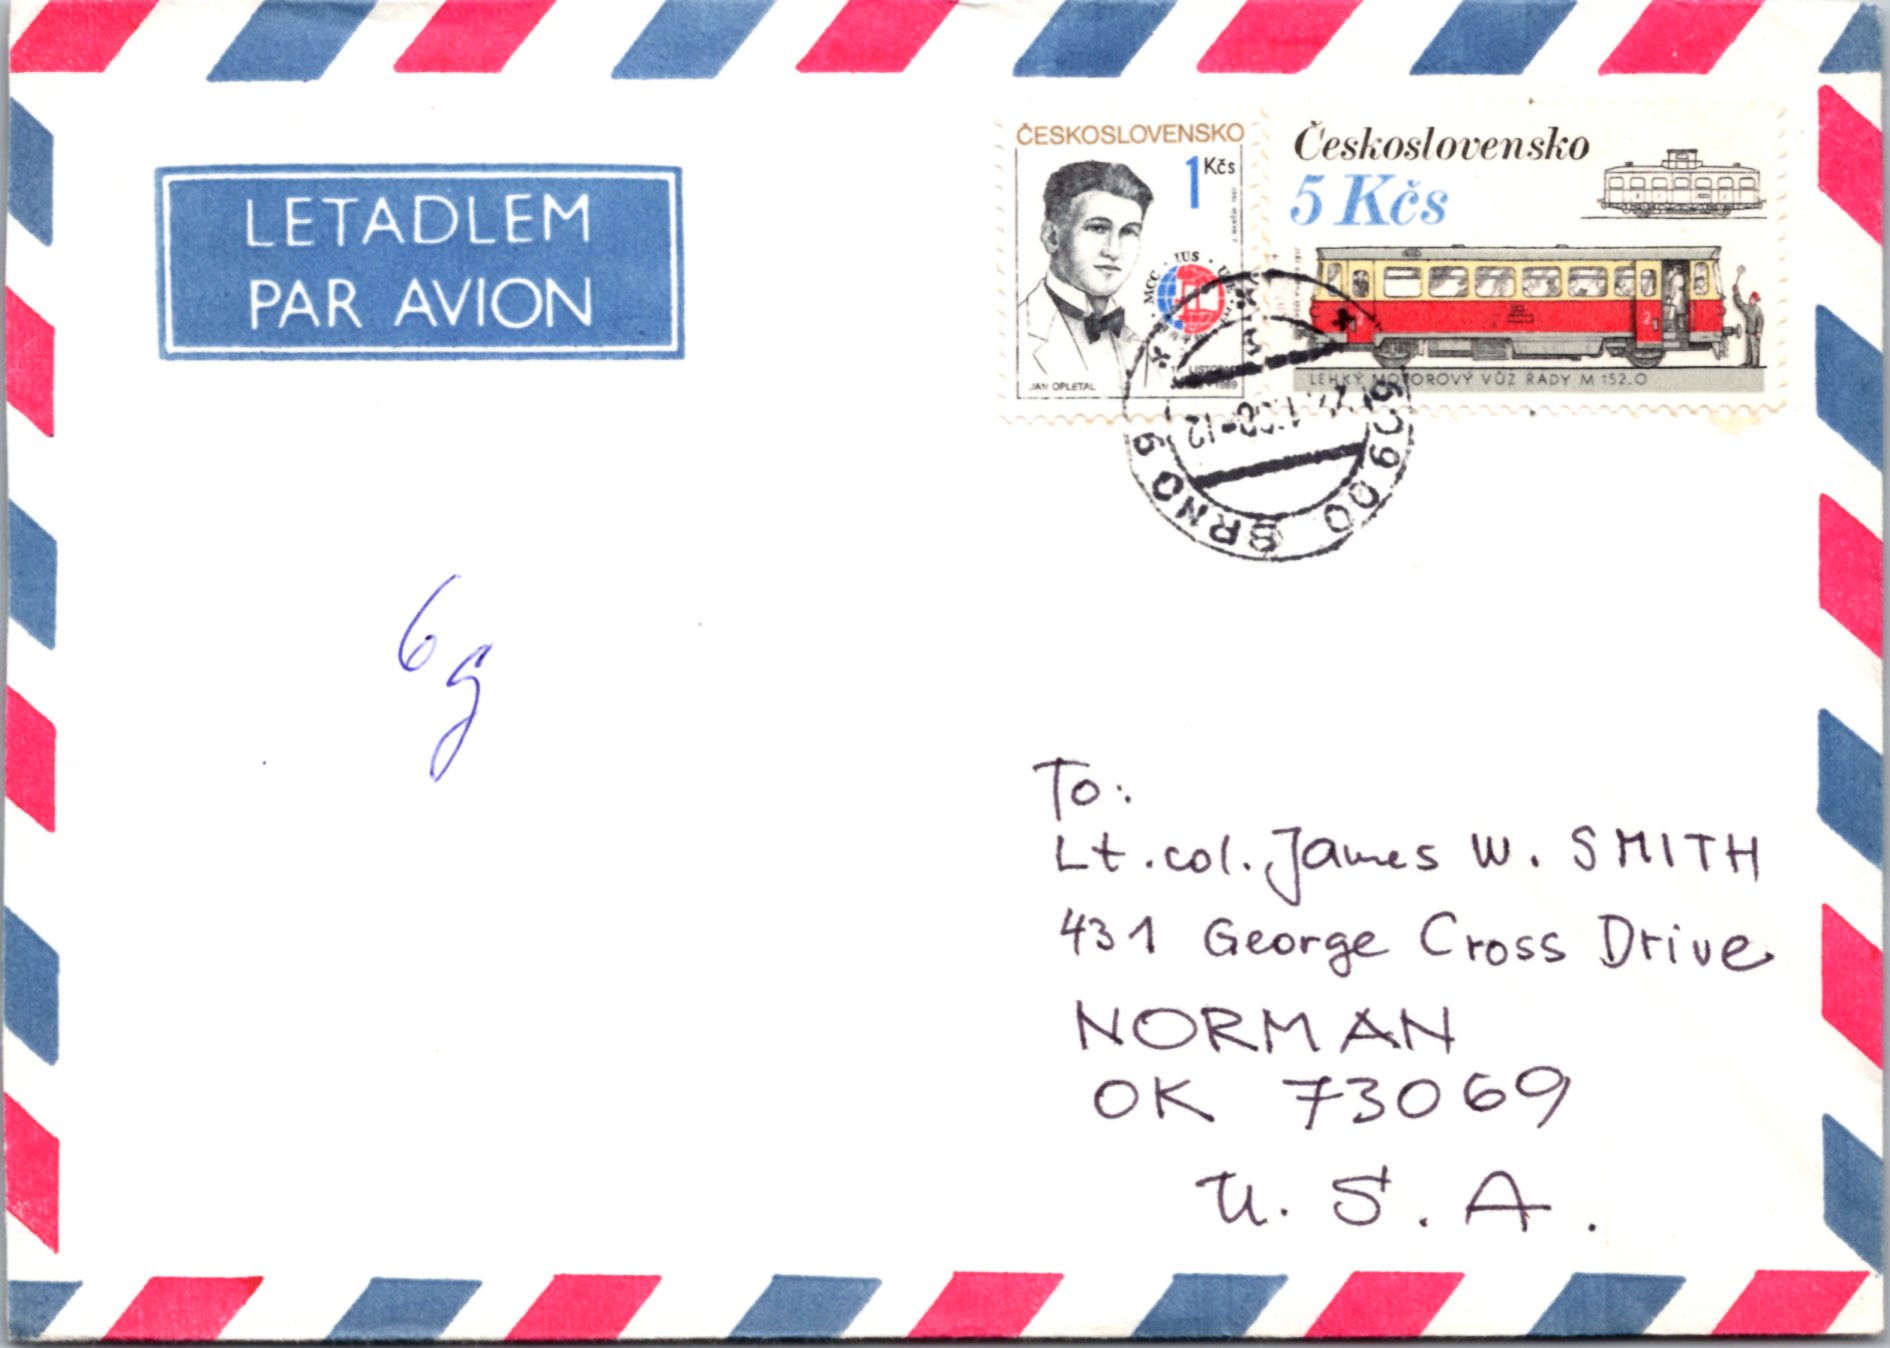 LETADLEM
PAR AVION
ČESKOSLOVENSKO
1 Kčs
MCC · IUS ·
JAN OPLETAL
1989
Československo
5 Kčs
LEHKÝ MOTOROVÝ VŮZ ŘADY M 152.0
2
609 00 BRNO 9
-12
6g
To:
Lt.col. James W. SMITH
431 George Cross Drive
NORMAN
OK 73069
U.S.A.